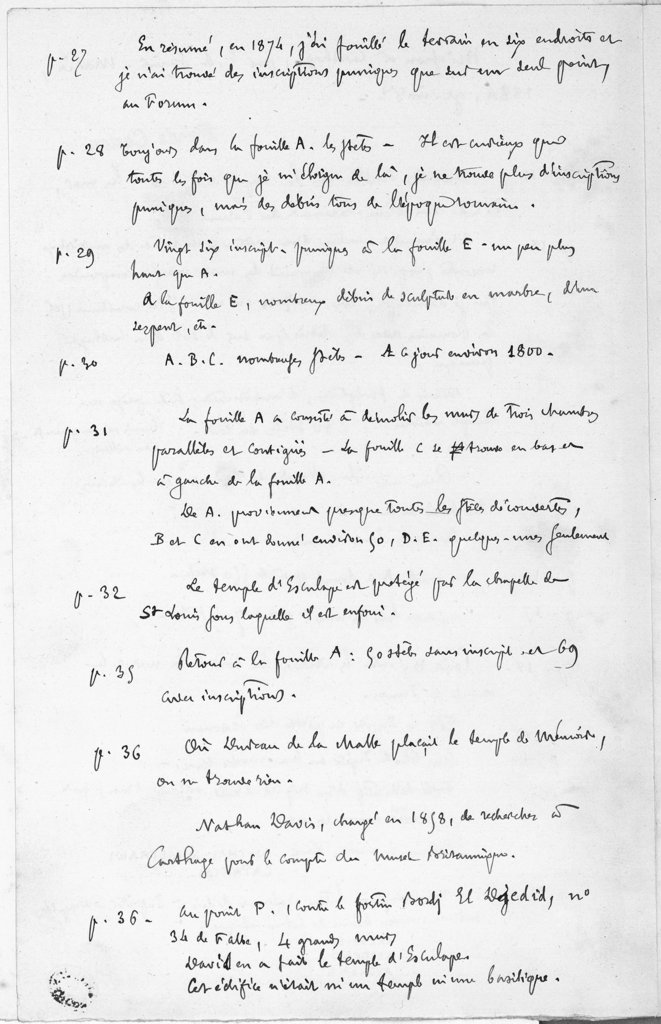 p. 27 En résumé, en 1874, j'ai fouillé le terrain en six endroits et
je n'ai trouvé des inscriptions puniques que sur un seul point,
au Forum.
p. 28 Toujours dans la fouille A. les stèles - Il est curieux que
toutes les fois que je m'éloigne de là, je ne trouve plus d'inscriptions
puniques, mais des débris tous de l'époque romaine.
p. 29 Vingt six inscript. puniques à la fouille E - un peu plus
haut que A.
A la fouille E, nombreux débris de sculpture en marbre, d'un
serpent, etc.
p. 30 A. B. C. nombreuses stèles - A ce jour environ 1800.
p. 31 La fouille A a consisté à démolir les murs de trois chambres
parallèles et contiguës - La fouille C se trouve en bas et
à gauche de la fouille A.
De A. proviennent presque toutes les stèles découvertes,
B et C en ont donné environ 50, D. E. quelques-unes seulement
p. 32 Le temple d'Esculape est protégé par la chapelle de
St Louis sous laquelle il est enfoui.
p. 35 Retour à la fouille A : 50 stèles sans inscript. et 69
avec inscriptions.
p. 36 Où Dureau de la Malle plaçait le temple de Mémoire,
on ne trouve rien.
Nathan Davis, chargé en 1858, de recherches à
Carthage pour le compte du Musée Britannique.
p. 36 - Au point P., contre le fortin Bordj El Djedid, no
34 de Falbe, 4 grands murs
Davis en a fait le temple d'Esculape.
Cet édifice n'était ni un temple ni une basilique.